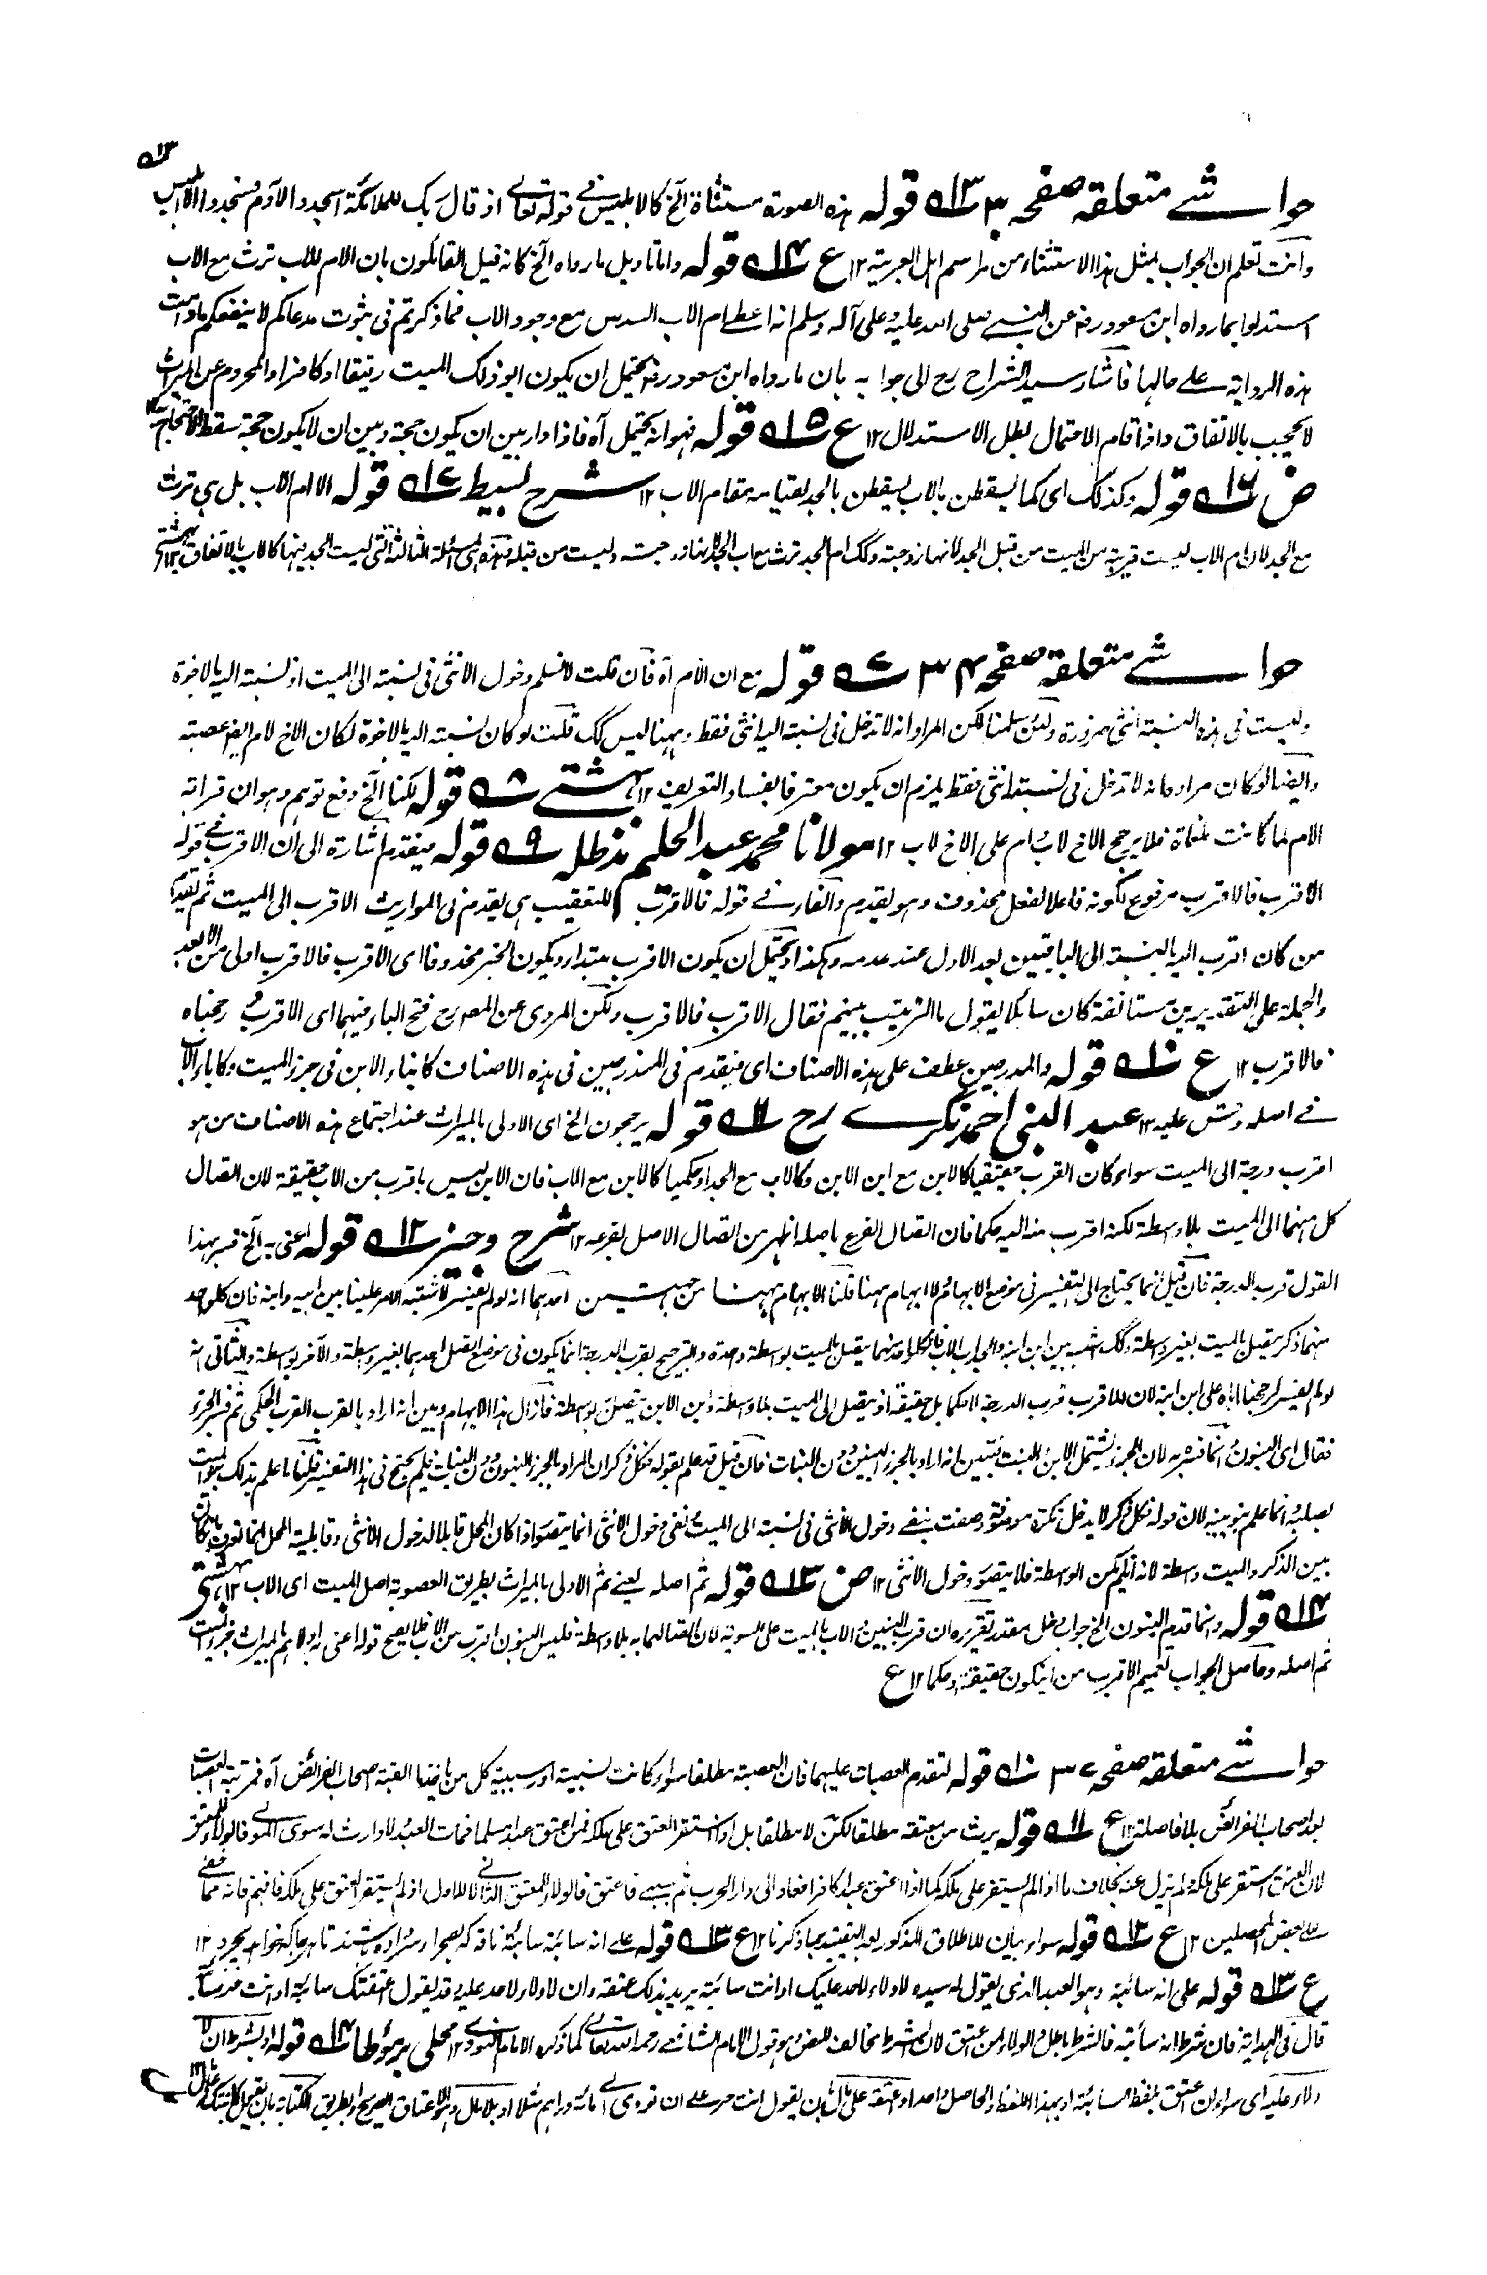 حواشے متعلقہ صفحہ ۳۰ ۱۳ قولہ ہذہ الصورة مستثناة الخ کالابلیس فے قولہ تعالے اذ قال ربک للملائکة اسجدوا لآدم فسجدوا الا ابلیس
وانت تعلم ان الجواب بمثل ہذا الاستثناء من مراسم اہل العربیة ۱۲ ع ۱۴ قولہ واما تاویل ما رواہ الخ کانہ قیل القائلون بان الام للاب ترث مع الاب
استدلوا بما رواہ ابن مسعود رضہ عن النبے صلی اللہ علیہ وعلی آلہ وسلم انہ اعطے ام الاب السدس مع وجود الاب فما ذکرتم فی ثبوت مدعاکم لا ینفعکم ما دامت
ہذہ الروایة علے حالہا فاشار سید الشراح رح الی جوابہ بان ما رواہ ابن مسعود رضہ یحتمل ان یکون ابو ذلک المیت رقیقا او کافرا والمحروم عن المیراث
لا یحجب بالاتفاق واذا قام الاحتمال بطل الاستدلال ۱۲ ع ۱۵ قولہ فہو انہ یحتمل آہ فاذا دار بین ان یکون حجة وبین ان لا یکون حجة سقط الاحتجاج بہ ۱۲
ض ۱۶ قولہ وکذلک ای کما یسقطن بالاب یسقطن بالجد لقیامہ مقام الاب ۱۲ شرح بسیط ۱۷ قولہ الا ام الاب بل ہی ترث
مع الجد لان ام الاب لیست قریبة من المیت من قبل الجد لانہا زوجتہ وکک ام الجد ترث مع اب الجد لانہا زوجتہ ولیست من قبلہ وہذہ ہی المسئلة الثالثة التی لیست الجد فیہا کالاب بالاتفاق ۱۲ بہشتی
حواشے متعلقہ صفحہ ۳۴ ۷ قولہ مع ان الام آہ فان قلت لا نسلم دخول الانثی فی نسبتہ الی المیت اذ نسبتہ الیہ بالاخوة
ولیست فی ہذہ النسبة انثی ضرورة ولئن سلمنا لکن المراد انہ لا تدخل فی نسبتہ الیہ انثی فقط وہہنا لیس کک قلت لو کان نسبتہ الیہ بالاخوة لکان الاخ لام ایضا عصبة
وایضا لو کان مرادہ انہ لا تدخل فی نسبتہ انثی فقط یلزم ان یکون معترفا بفساد التعریف ۱۲ بہشتے ۸ قولہ لکنا الخ دفع توہم وہو ان قرابة
الام لما کانت ملغاة فلا یرجح الاخ لاب وام علی الاخ لاب ۱۲ مولانا محمد عبد الحلیم مدظلہ ۹ قولہ فیقدم اشارة الی ان الاقرب فے قولہ
الاقرب فالاقرب مرفوع لکونہ فاعلا لفعل محذوف وہو یقدم والفاء فے قولہ فالاقرب للتعقیب ای یقدم فی المواریث الاقرب الی المیت ثم یقدم
من کان اقرب الیہ بالنسبة الی الباقیین بعد الاول عند عدمہ وہکذا ویحتمل ان یکون الاقرب مبتدا ویکون الخبر محذوفا ای الاقرب فالاقرب اولی من الابعد
والجملة علی التقدیرین مستانفة کان سائلا یقول ما الترتیب بینہم فقال الاقرب فالاقرب ولکن المروی عن المصنف رح فتح الباء فیہما ای الاقرب رجحناہ
فالاقرب ۱۲ ع ۱۰ قولہ والمدرجین عطف علی ہذہ الاصناف ای فیقدم فی المندرجین فی ہذہ الاصناف کابناء الابن فی جزء المیت وکاباء الاب
فے اصلہ وقس علیہ ۱۲ عبد النبی احمد نگرے رح ۱۱ قولہ یرجحون الخ ای الاولی بالمیراث عند اجتماع ہذہ الاصناف من ہو
اقرب درجة الی المیت سواء کان القرب حقیقیا کالابن مع ابن الابن وکالاب مع الجد او حکمیا کالابن مع الاب فان الابن لیس باقرب من الاب حقیقة لان اتصال
کل منہما الی المیت بلا واسطة لکنہ اقرب منہ الیہ حکما فان اتصال الفرع باصلہ اظہر من اتصال الاصل بفرعہ ۱۲ شرح وجیز ۱۲ قولہ اعنی بہ الخ فسر بہذا
القول قرب الدرجة فان قیل انما یحتاج الی التفسیر فی موضع الابہام ولا ابہام ہہنا قلنا الابہام ہہنا من جہتین احدہما انہ لو لم یفسر لاشتبہ الامر علینا بین ابیہ وابنہ فان کل واحد
منہما ذکر یتصل بالمیت بغیر واسطة وکک اشتبہ بین ابن ابنہ والجد اب الاب فان کل واحد منہما یتصل بالمیت بواسطة واحدة والترجیح بقرب الدرجة انما یکون فی موضع اتصل احدہما بغیر واسطة والآخر بواسطة والثانی انہ
لو لم یفسر لرجحنا اباہ علی ابن ابنہ لان للاب قرب الدرجة لا حکما بل حقیقة اذ یتصل الی المیت بلا واسطة وابن الابن یتصل بواسطة فازال ہذا الابہام وبین انہ اراد بالقرب القرب الحکمی ثم فسر الجزء
فقال ای البنون انما فسرہ بہ لان الجزء یشتمل الابن والبنت فتبین انہ اراد بالجزء البنین دون البنات فان قیل قد علم بقولہ فکل ذکر ان المراد بالجزء البنون دون البنات فلم یحتج فی ہذا التفسیر قلنا ما علم بذلک بنو المیت
لصلبہ انما علم بنو بنیہ لان قولہ فکل ذکر لا یدخل نکرة موصوفة وصفت بنفے دخول الانثی فی نسبتہ الی المیت ونفی دخول الانثی انما یتصور اذا کان المحل قابلا لدخول الانثی وقابلیة المحل انما تکون بان کان
بین الذکر والمیت واسطة لانہ اذا لم یکن الواسطة فلا یتصور دخول الانثی ۱۲ ض ۱۳ قولہ ثم اصلہ یعنے ثم الاولی بالمیراث بطریق العصوبة اصل المیت ای الاب ۱۲ بہشتی
۱۴ قولہ وانما قدم البنون الخ جواب دخل مقدر تقریرہ ان قرب البنین والاب بالمیت علی السویة لان اتصالہما بہ بلا واسطة فلیس البنون اقرب من الاب فلا یصح قولہ اعنی بہ اولاہم بالمیراث جزء المیت
ثم اصلہ وحاصل الجواب تعمیم الاقرب من ان یکون حقیقة وحکما ۱۲ ع
حواشے متعلقہ صفحہ ۳۷ ۱۰ قولہ لتقدم العصبات علیہما فان العصبة مطلقا سواء کانت نسبیة او سببیة کل من یاخذ ما ابقتہ اصحاب الفرائض آہ فمرتبة العصبات
بعد اصحاب الفرائض بلا فاصلة ۱۲ ع ۱۱ قولہ یرث من معتقہ مطلقا لکن لا مطلقا بل اذا استقر العتق علی ملکہ فمن اعتق عبدا مسلما فمات العبد ولا وارث لہ سوی المولے فالولاء للمعتق
لان العتق استقر علی ملکہ ولم یزل عنہ بخلاف ما اذا لم یستقر علی ملکہ کما اذا اعتق عبدا کافرا فعاد الی دار الحرب ثم سبے فاعتق فالولاء للمعتق الثانے لا للاول اذ لم یستقر العتق علی ملکہ فافہم فانہ مما خفے
علے بعض المحصلین ۱۲ ع ۱۲ قولہ سواء بیان للاطلاق المذکور بعد التقیید بما ذکرنا ۱۲ ع ۱۳ قولہ علے انہ سائبة سائبة ناقہ کہ بصحرا سر دادہ باشند تا ہر جا کہ خواہد بچرد ۱۲
ع ۱۳ قولہ علی انہ سائبة وہو العبد الذی یقول لہ سیدہ لا ولاء لاحد علیک او انت سائبة یرید بذلک عتقہ وان لا ولاء لاحد علیہ وقد یقول اعتقتک سائبة او انت حر سائبة
قال فی الہدایة فان شرط انہ سائبة فالشرط باطل والولاء لمن اعتق لان الشرط مخالف للنص وہو قول الامام الشافعے رحمہ اللہ تعالے کما ذکرہ الامام النووے ۱۲ محلی بر مؤطا ۱۴ قولہ او بشرط ان لا
ولاء علیہ ای سواء ان عتق بلفظ السائبة او بہذا اللفظ والحاصل واحد او اعتقہ علی مال بان یقول انت حر علے ان تؤدی الے مائة دراہم مثلا او بلا مال وہو الاعتاق الصریح او بطریق الکتابة بان یقول کاتبتک علی مال ۱۲